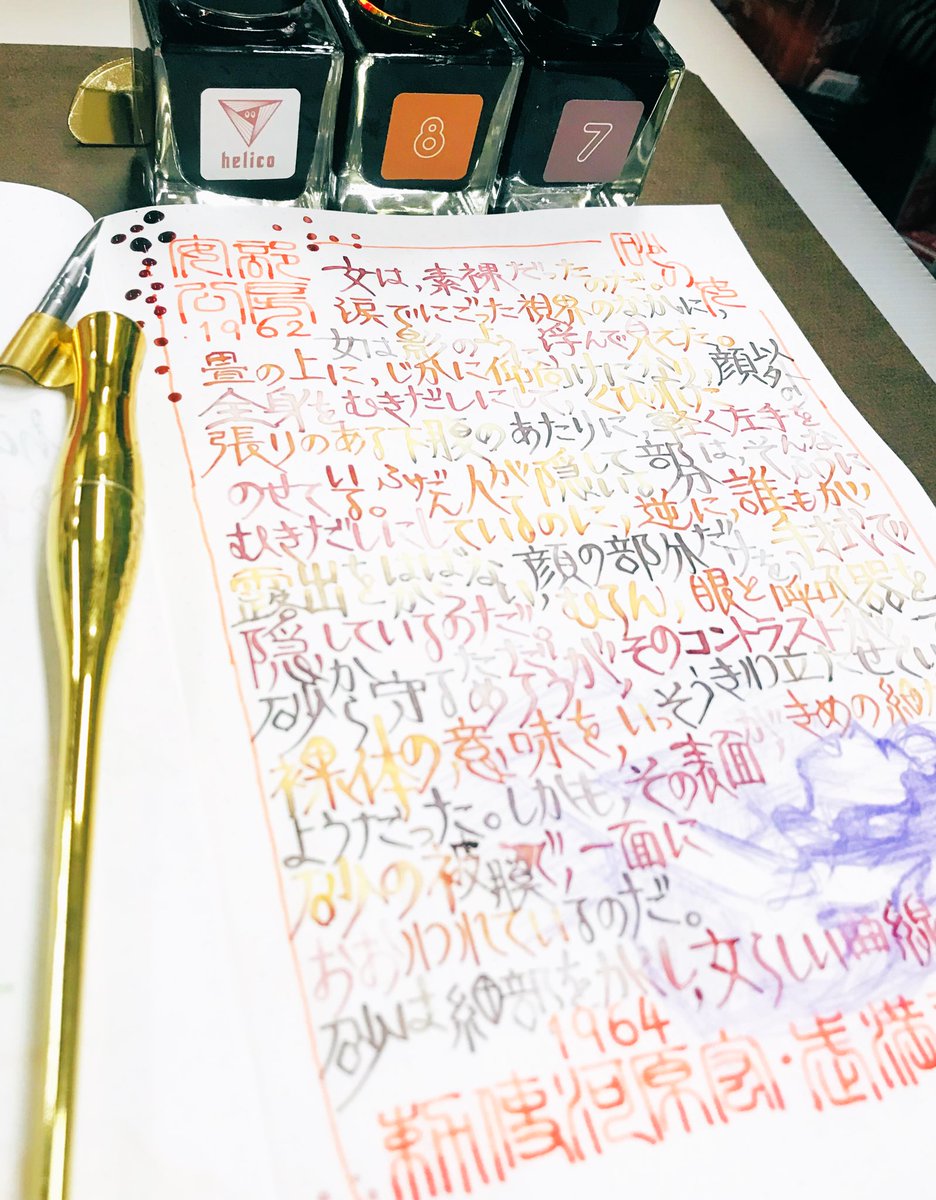 helico
8
7
安部
公房
1962
砂の女
女は、素裸だったのだ。
涙でにごった視界のなかに、
女は影のように、浮んで見えた。
畳の上に、じかに仰向けになり、顔以外の
全身をむきだしにして、くびれた
張りのある下腹のあたりに、軽く左手を
のせている。ふだん人が隠している部分は、そんなふうに
むきだしにしているのに、逆に、誰もが
露出をはばからない、顔の部分だけを、手拭で
隠しているのだ。むろん、眼と呼吸器を
砂から守るためだろうが、そのコントラストが
裸体の意味を、いっそうきわ立たせてい
ようだった。しかも、その表面が、きめの細
砂の被膜で、一面に
おおわれているのだ。
砂は細部をかくし、女らしい曲線
1964
勅使河原宏・武満